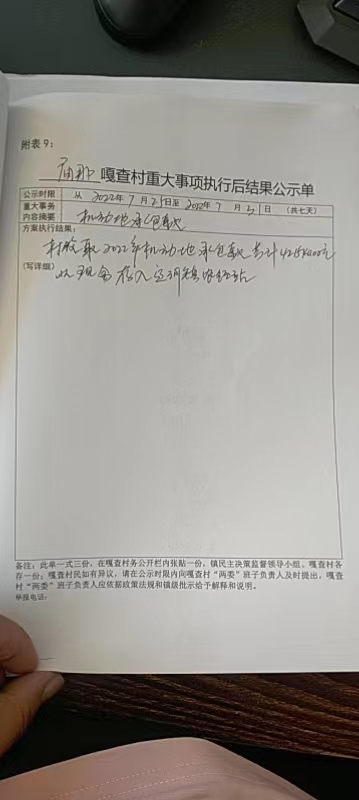 附表9：
嘎查村重大事项执行后结果公示单
公示时限 从 2022年 7 月 25日至 2022年 7 月 31 日 （共七天）
重大事务
内容摘要 机动地承包款
方案执行结果：
村收取2022年机动地承包款共计
(写详细) 以现金存入
备注：此单一式三份，在嘎查村务公开栏内张贴一份，镇民主决策监督领导小组、嘎查村各
存一份；嘎查村民如有异议，请在公示时限内向嘎查村“两委”班子负责人及时提出，嘎查
村“两委”班子负责人应依据政策法规和镇级批示给予解释和说明。
举报电话：